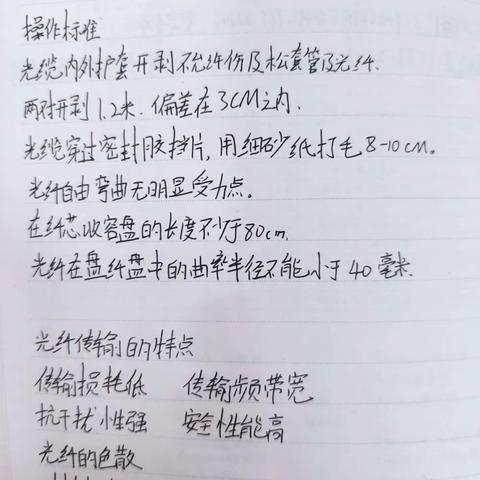 操作标准
光缆内外护套开剥不允许伤及松套管及光纤.
两对开剥1.2米.偏差在3CM之内.
光缆穿过密封胶挡片,用细砂纸打毛8-10cm.
光纤自由弯曲无明显受力点.
在纤芯收容盘的长度不少于80cm.
光纤在盘纤盘中的曲率半径不能小于40毫米.
光纤传输的特点
传输损耗低 传输频带宽
抗干扰性强 安全性能高
光纤的色散